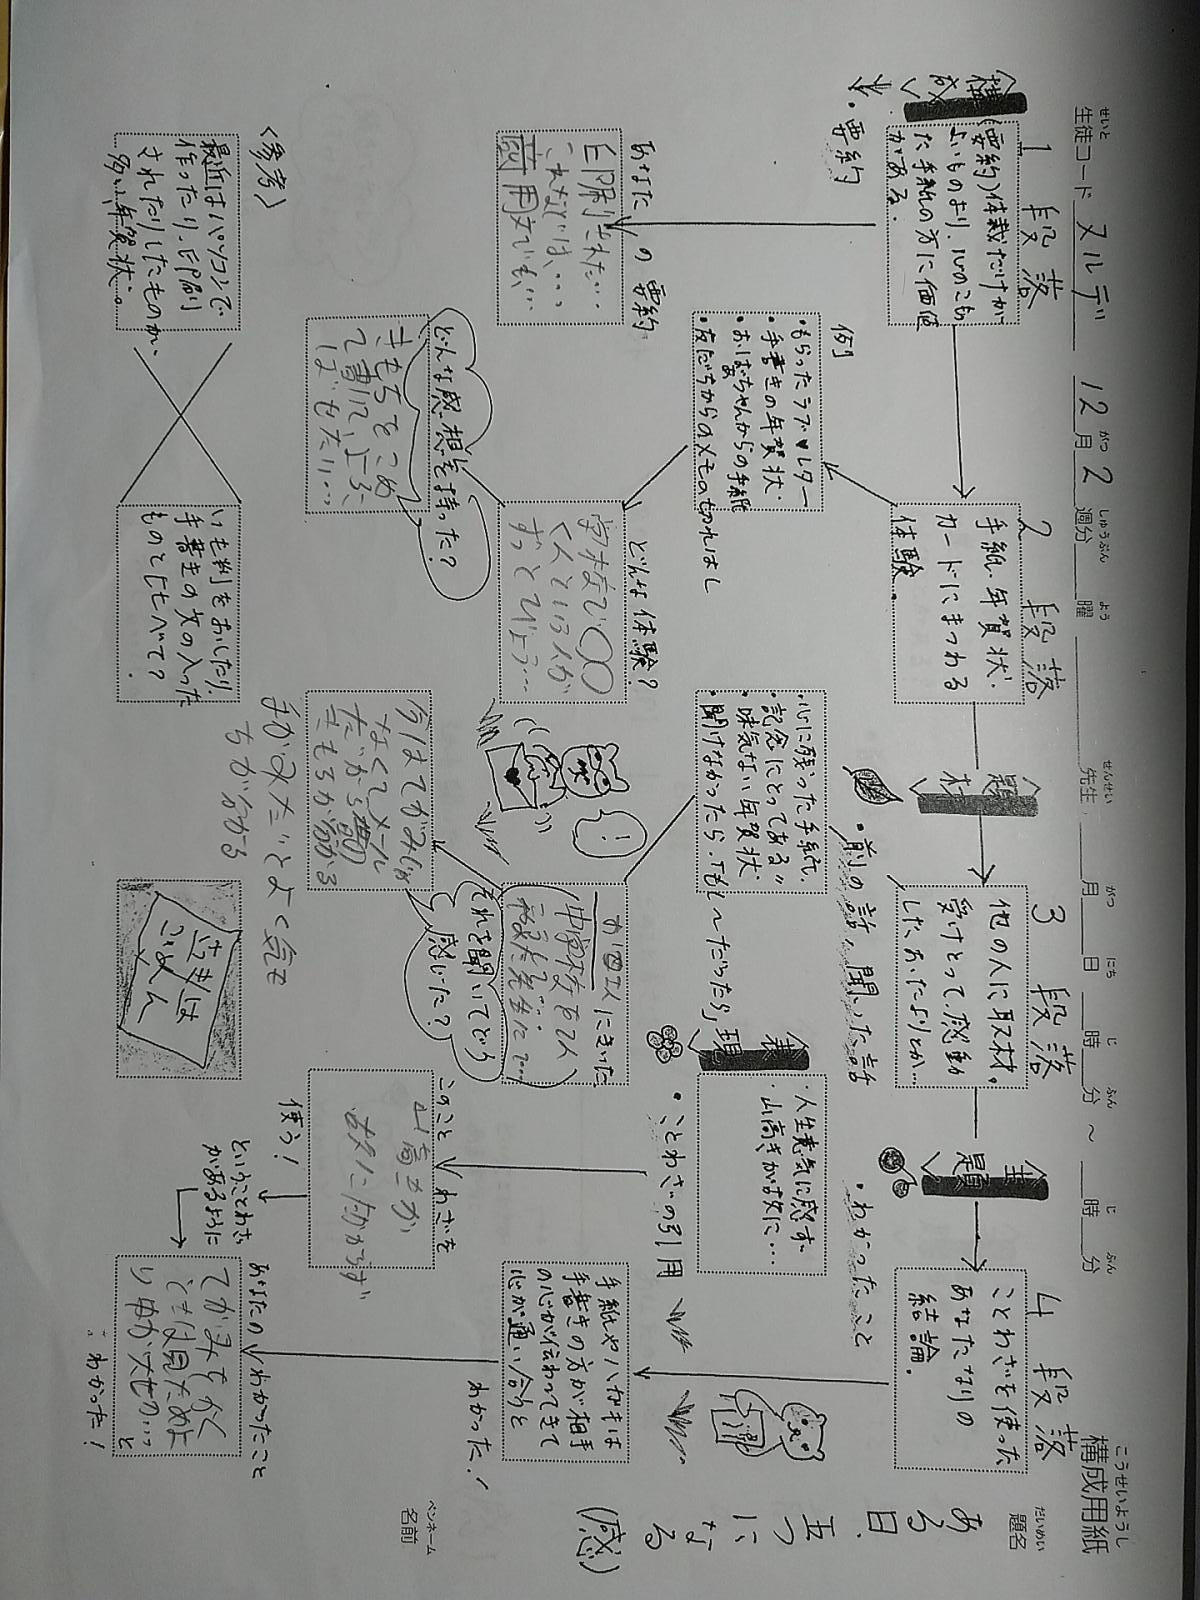 こうせいようし
構成用紙
せいと
生徒コード ヌルデ
12月2週分 曜 先生 月 日 時 分 ～ 時 分
だいめい
題名
ある日、
五つに
なる
(感)
ペンネーム
名前
1段落
(要約)体裁だけが
よいものより、心のこもっ
た手紙の方に価値
がある。
<構成>
・要約
あなたの要約
印刷された…
…
〈参考〉
最近はパソコンで
作ったり、印刷
されたりしたものが
多い、年賀状。
いも判をおしたり、
手書きの文の入った
ものと比べて?
2段落
手紙・年賀状・
カードにまつわる
体験。
例
・もらったラブ♥レター
・手書きの年賀状
・おばあちゃんからの手紙
・友だちからのメモの切れはし
どんな体験?
学校で〇〇
くんという人が
ずっと
どんな感想を持った?
きもちをこめ
て書いて
<題材>
・前の話、聞いた話
3段落
他の人に取材。
受けとって感動
したおたよりとか…
・心に残った手紙
・記念にとってある〃
・味気ない年賀状
聞けなかったら、「もし～だったら」
にきいた
それを聞いてどう
感じた?
今はてがみじゃ
なくてメール
だから
きもちが分かる
手がみだとよく気も
ちが分かる
続きは
ごめん
!
<表現>
・ことわざの引用
・人生意気に感ず
・山高きが故に…
このことわざを
使う!
山高きが
故にたからず
ということわざ
があるように
<主題>
・わかったこと
4段落
ことわざを使った
あなたなりの
結論。
手紙やハガキは
手書きの方が相手
の心が伝わってきて
心が通い合うと
わかった!
あなたのわかったこと
てがみもかく
ときは見ためよ
りゆが大せつ…と
わかった!